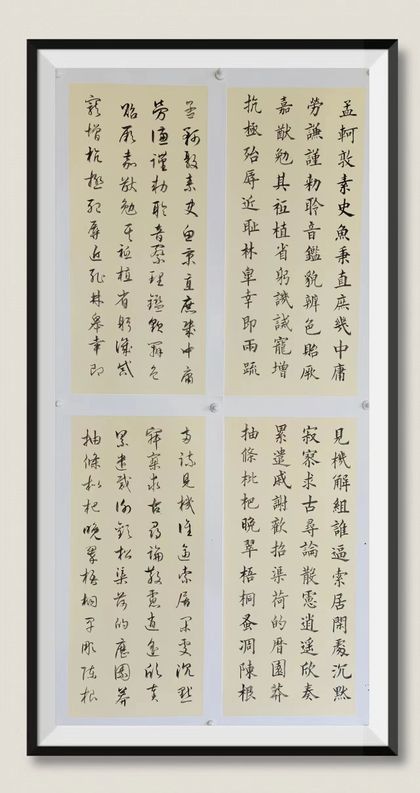 孟軻敦素史魚秉直庶幾中庸
勞謙謹勅聆音鑑貌辨色貽厥
嘉猷勉其祗植省躬譏誡寵增
抗極殆辱近耻林皐幸即兩疏
孟軻敦素史魚秉直庶幾中庸
勞謙謹勅聆音察理鑑貌辨色
貽厥嘉猷勉其祗植省躬譏誡
寵增抗極殆辱近耻林皋幸即
見機解組誰逼索居閑處沉默
寂寥求古尋論散慮逍遥欣奏
累遣戚謝歡招渠荷的曆園莽
抽條枇杷晚翠梧桐蚤凋陳根
兩疏見機誰逼索居閑處沉默
寂寥求古尋論散慮逍遥欣奏
累遣戚謝歡招渠荷的歷園莽
抽條枇杷晚翠梧桐早彫陳根